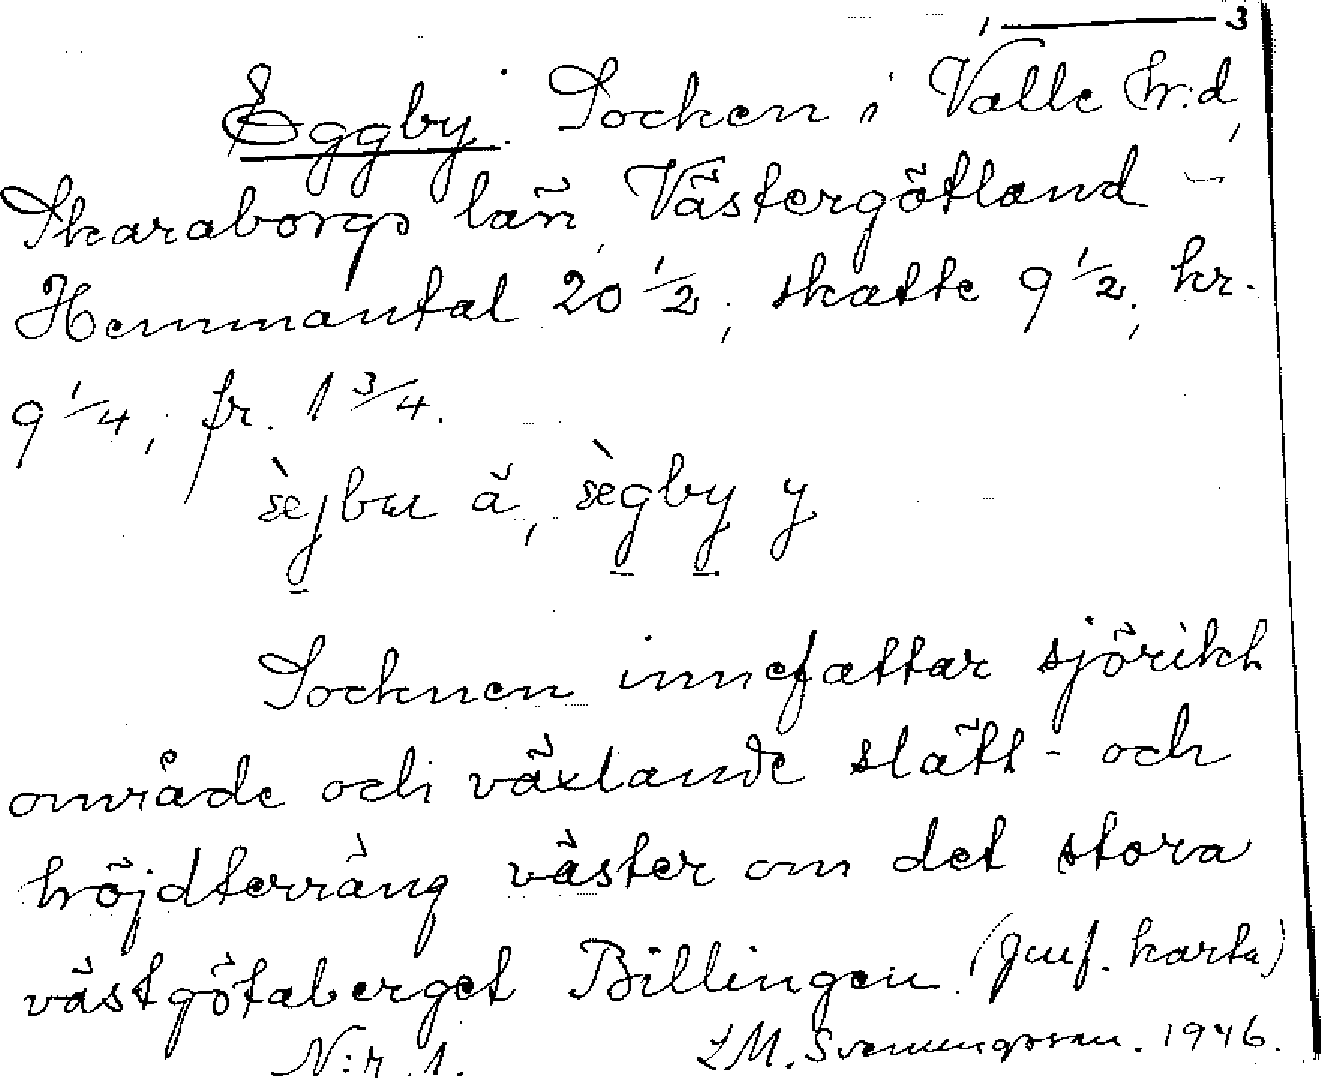 1 — 3
Eggby. Socken i Valle hr:d,
Skaraborgs län, Västergötland –
Hemmantal 20 1/2, skatte 9 1/2; kr.
9 1/4; fr. 1 3/4.
sòcknen
Socknen innefattar sjörikt
område och växlande slätt- och
höjdterräng väster om det stora
västgötaberget Billingen. (jmf. karta)
N:r 1. L M. Svenungsson. 1946.